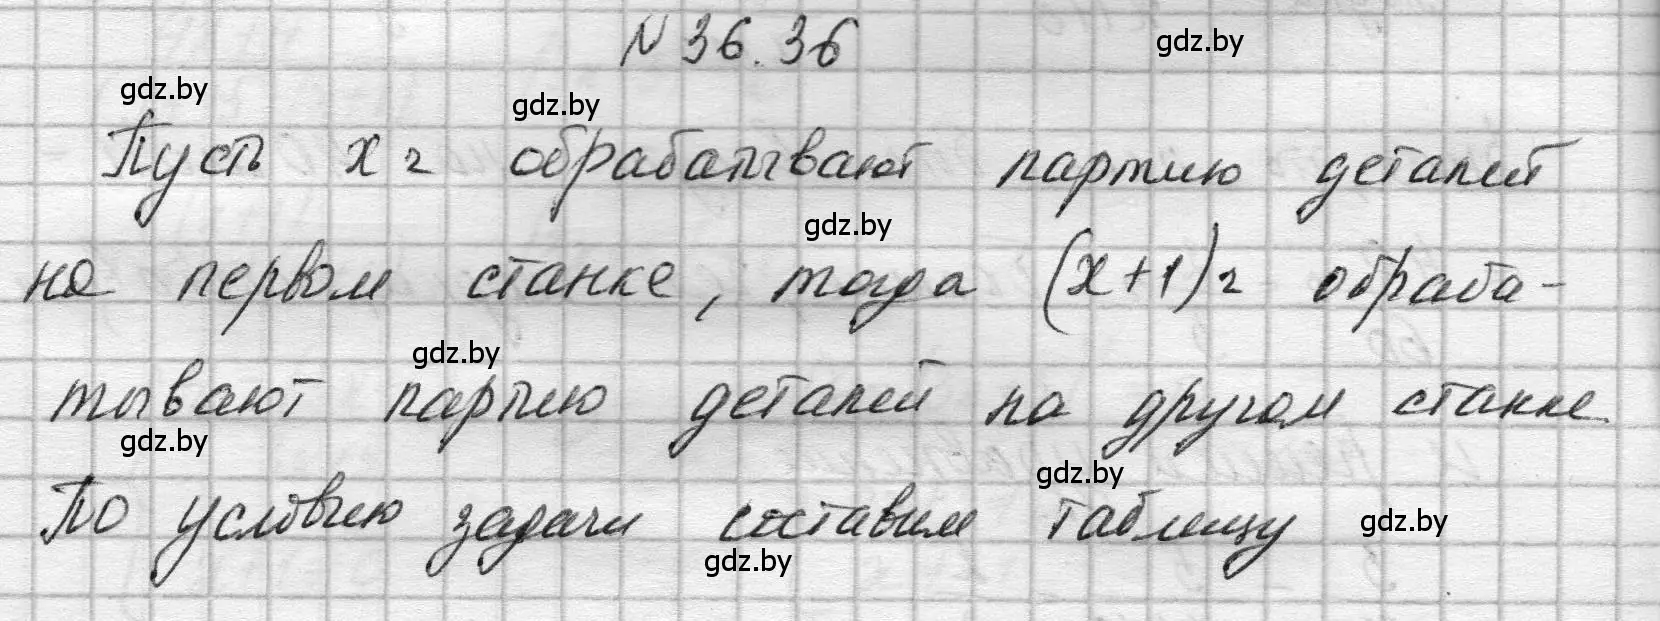 N 36.36
gdz.by
gdz.by
gdz.by
Пусть x г обрабатывают партию деталей
gdz.by
на первом станке, тогда (x+1) г обраба-
gdz.by
тывают партию деталей на другом станке
gdz.by
gdz.by
По условию задачи составим таблицу
gdz.by
gdz.by